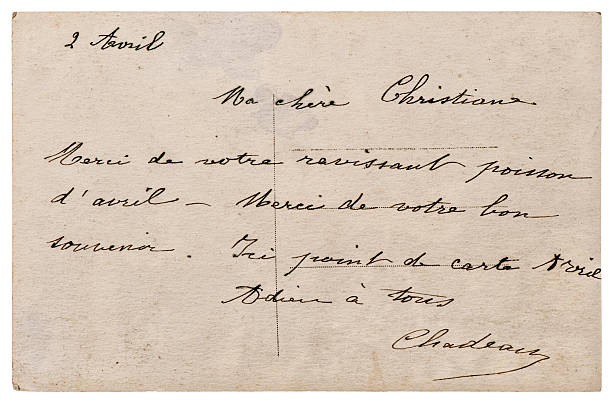 2 Avril
Ma chère Christiane
Merci de votre ravissant poisson
d'avril - Merci de votre bon
souvenir. Ici point de carte Avril
Adieu à tous
Chadeau